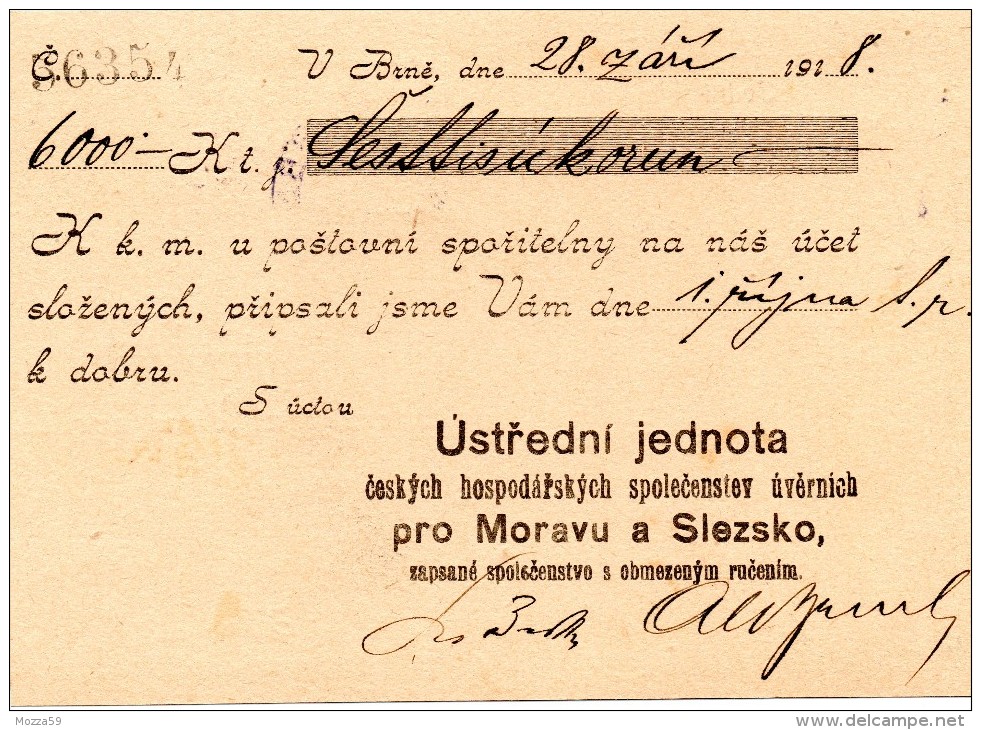 Č. 56354 V Brně, dne 28. září 1918.
6000·— K t. j. Šesttisíc korun
K k. m. u poštovní spořitelny na náš účet
složených, připsali jsme Vám dne 1. října t. r.
k dobru.
S úctou
Ústřední jednota
českých hospodářských společenstev úvěrních
pro Moravu a Slezsko,
zapsané společenstvo s obmezeným ručením.
Mozza59
www.delcampe.net